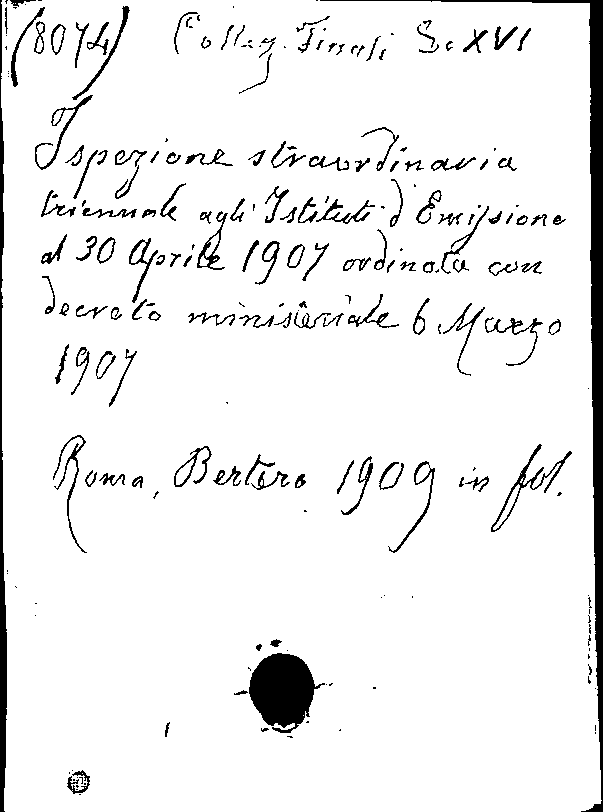 (8074) Colleg. Finali Sc XVI
Ispezione straordinaria
triennale agli Istituti d'Emissione
al 30 Aprile 1907 ordinata con
decreto ministeriale 6 Marzo
1907
Roma, Bertero 1909 in fol.